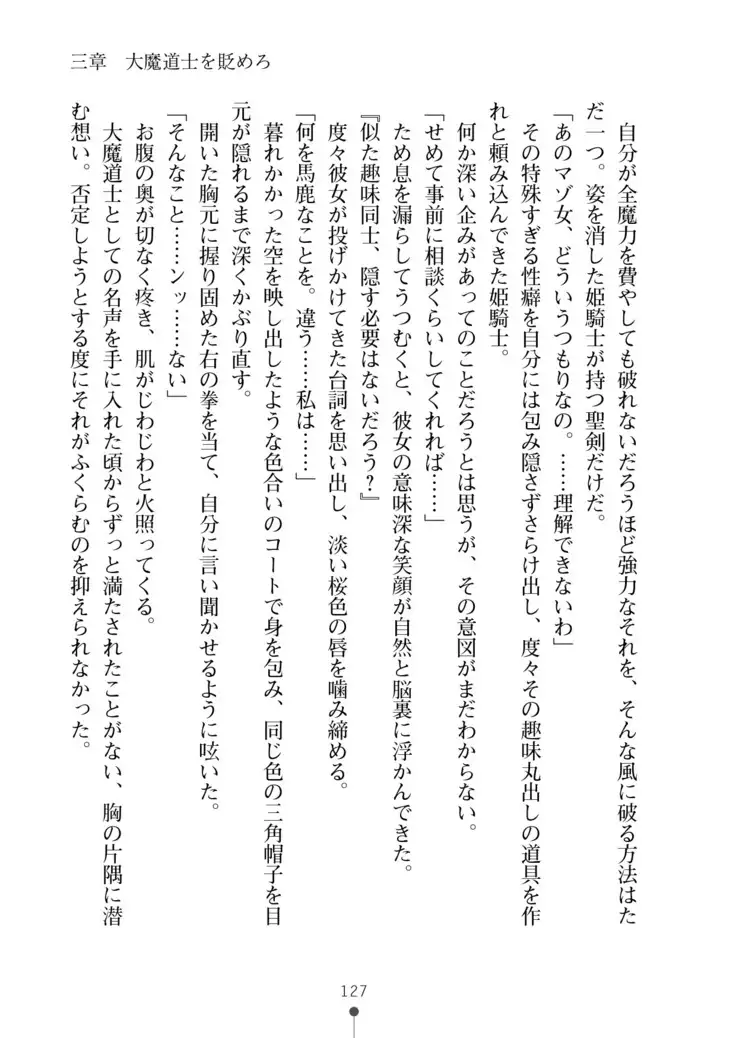 三章　大魔道士を貶めろ
　自分が全魔力を費やしても破れないだろうほど強力なそれを、そんな風に破る方法はた
だ一つ。姿を消した姫騎士が持つ聖剣だけだ。
「あのマゾ女、どういうつもりなの。……理解できないわ」
　その特殊すぎる性癖を自分には包み隠さずさらけ出し、度々その趣味丸出しの道具を作
れと頼み込んできた姫騎士。
　何か深い企みがあってのことだろうとは思うが、その意図がまだわからない。
「せめて事前に相談くらいしてくれれば……」
　ため息を漏らしてうつむくと、彼女の意味深な笑顔が自然と脳裏に浮かんできた。
『似た趣味同士、隠す必要はないだろう？』
　度々彼女が投げかけてきた台詞を思い出し、淡い桜色の唇を噛み締める。
「何を馬鹿なことを。違う……私は……」
　暮れかかった空を映し出したような色合いのコートで身を包み、同じ色の三角帽子を目
元が隠れるまで深くかぶり直す。
　開いた胸元に握り固めた右の拳を当て、自分に言い聞かせるように呟いた。
「そんなこと……ンッ……ない」
　お腹の奥が切なく疼き、肌がじわじわと火照ってくる。
　大魔道士としての名声を手に入れた頃からずっと満たされたことがない、胸の片隅に潜
む想い。否定しようとする度にそれがふくらむのを抑えられなかった。
127